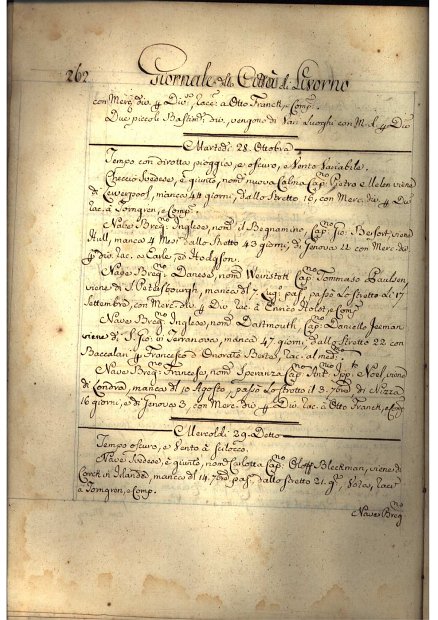 262 Giornale della Città di Livorno
con Merc. div. p. Div. racc. a Otto Franck, e Comp.
Due piccoli Bastim. div. vengono di Vari Luoghi con M. d. p. Div.
Martedì 28. Ottobre
Tempo con dirotta pioggia, e oscuro, e Vento Variabile.
Checcio Svedese, è giunto, nom. nuova Cap.no Pietro e Melen viene
di Lewerpoool, manca 48 giorni, dallo Stretto 18, con Merc. div. p. Div.
rac. à Torngren, e Comp.
Nave Breq. Inglese, nom. il Begnamino, Cap. Gio. Berfort, viene
Hull, manca 4 Mesi dallo Stretto 43 giorni, di Genova 11 con Merc. div.
p. div. rac. a Earle, e Hodgson.
Nave Breq. Danese, nom. Weinstott Cap.no Tommaso Paulsen,
viene di S. Pietroisbourgh, manca dl 7 Lug. pas. passò Lo stretto li 17
Settembre, con Merc. div. p. Div. rac. à Enrico Holst, e Comp.
Nave Breq. Inglese, nom. Dartmouth, Cap.no Daniello Jeeman
viene di S. Gio: in Terranova, manca 47 giorni, dallo Stretto 22 con
Baccalari p. Francesco d' Onorato Berte, rac. al med.
Nave Breq. Francese, nom. Speranza Cap.no Ant. Ipp. Noel, viene
di Londra, manca dl 10 Agosto, passò Lo stretto il 3. 7bre di Nizza
16 giorni, e di Genova 3, con Merc. div. p. Div. rac. à Otto Franck, e Comp
Mercoldì 29. Detto
Tempo oscuro, e Vento à scilocco.
Nave Svedese, è giunta, nom. Carlotta Cap.no Oloff Bleckman, viene di
Corck in Islanda, manca dl 14. 7bre pas. dallo stretto 21. g. Vota, rac.
a Torngren, e Comp.
Nave Breq.no